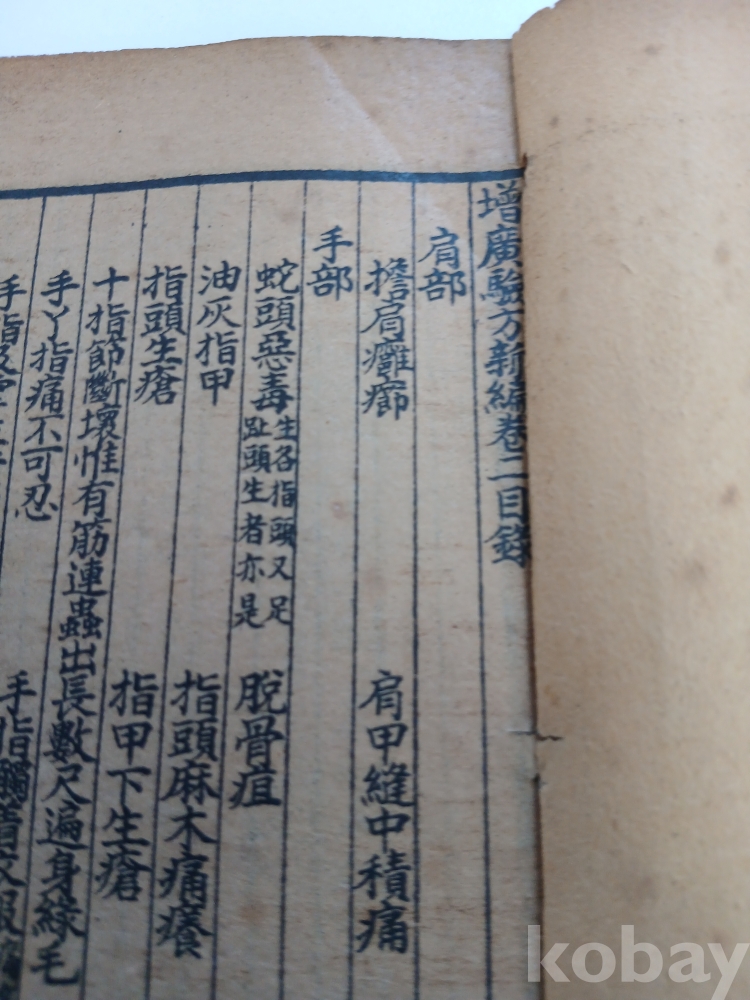 增廣驗方新編卷二目錄
肩部
擔肩癰癤 肩甲縫中積痛
手部
蛇頭惡毒 生各指頭又足趾頭生者亦是 脫骨疽
油灰指甲 指頭麻木痛癢
指頭生瘡 指甲下生瘡
十指節斷壞惟有筋連蟲出長數尺遍身綠毛
手丫指痛不可忍 手指
手指
kobay